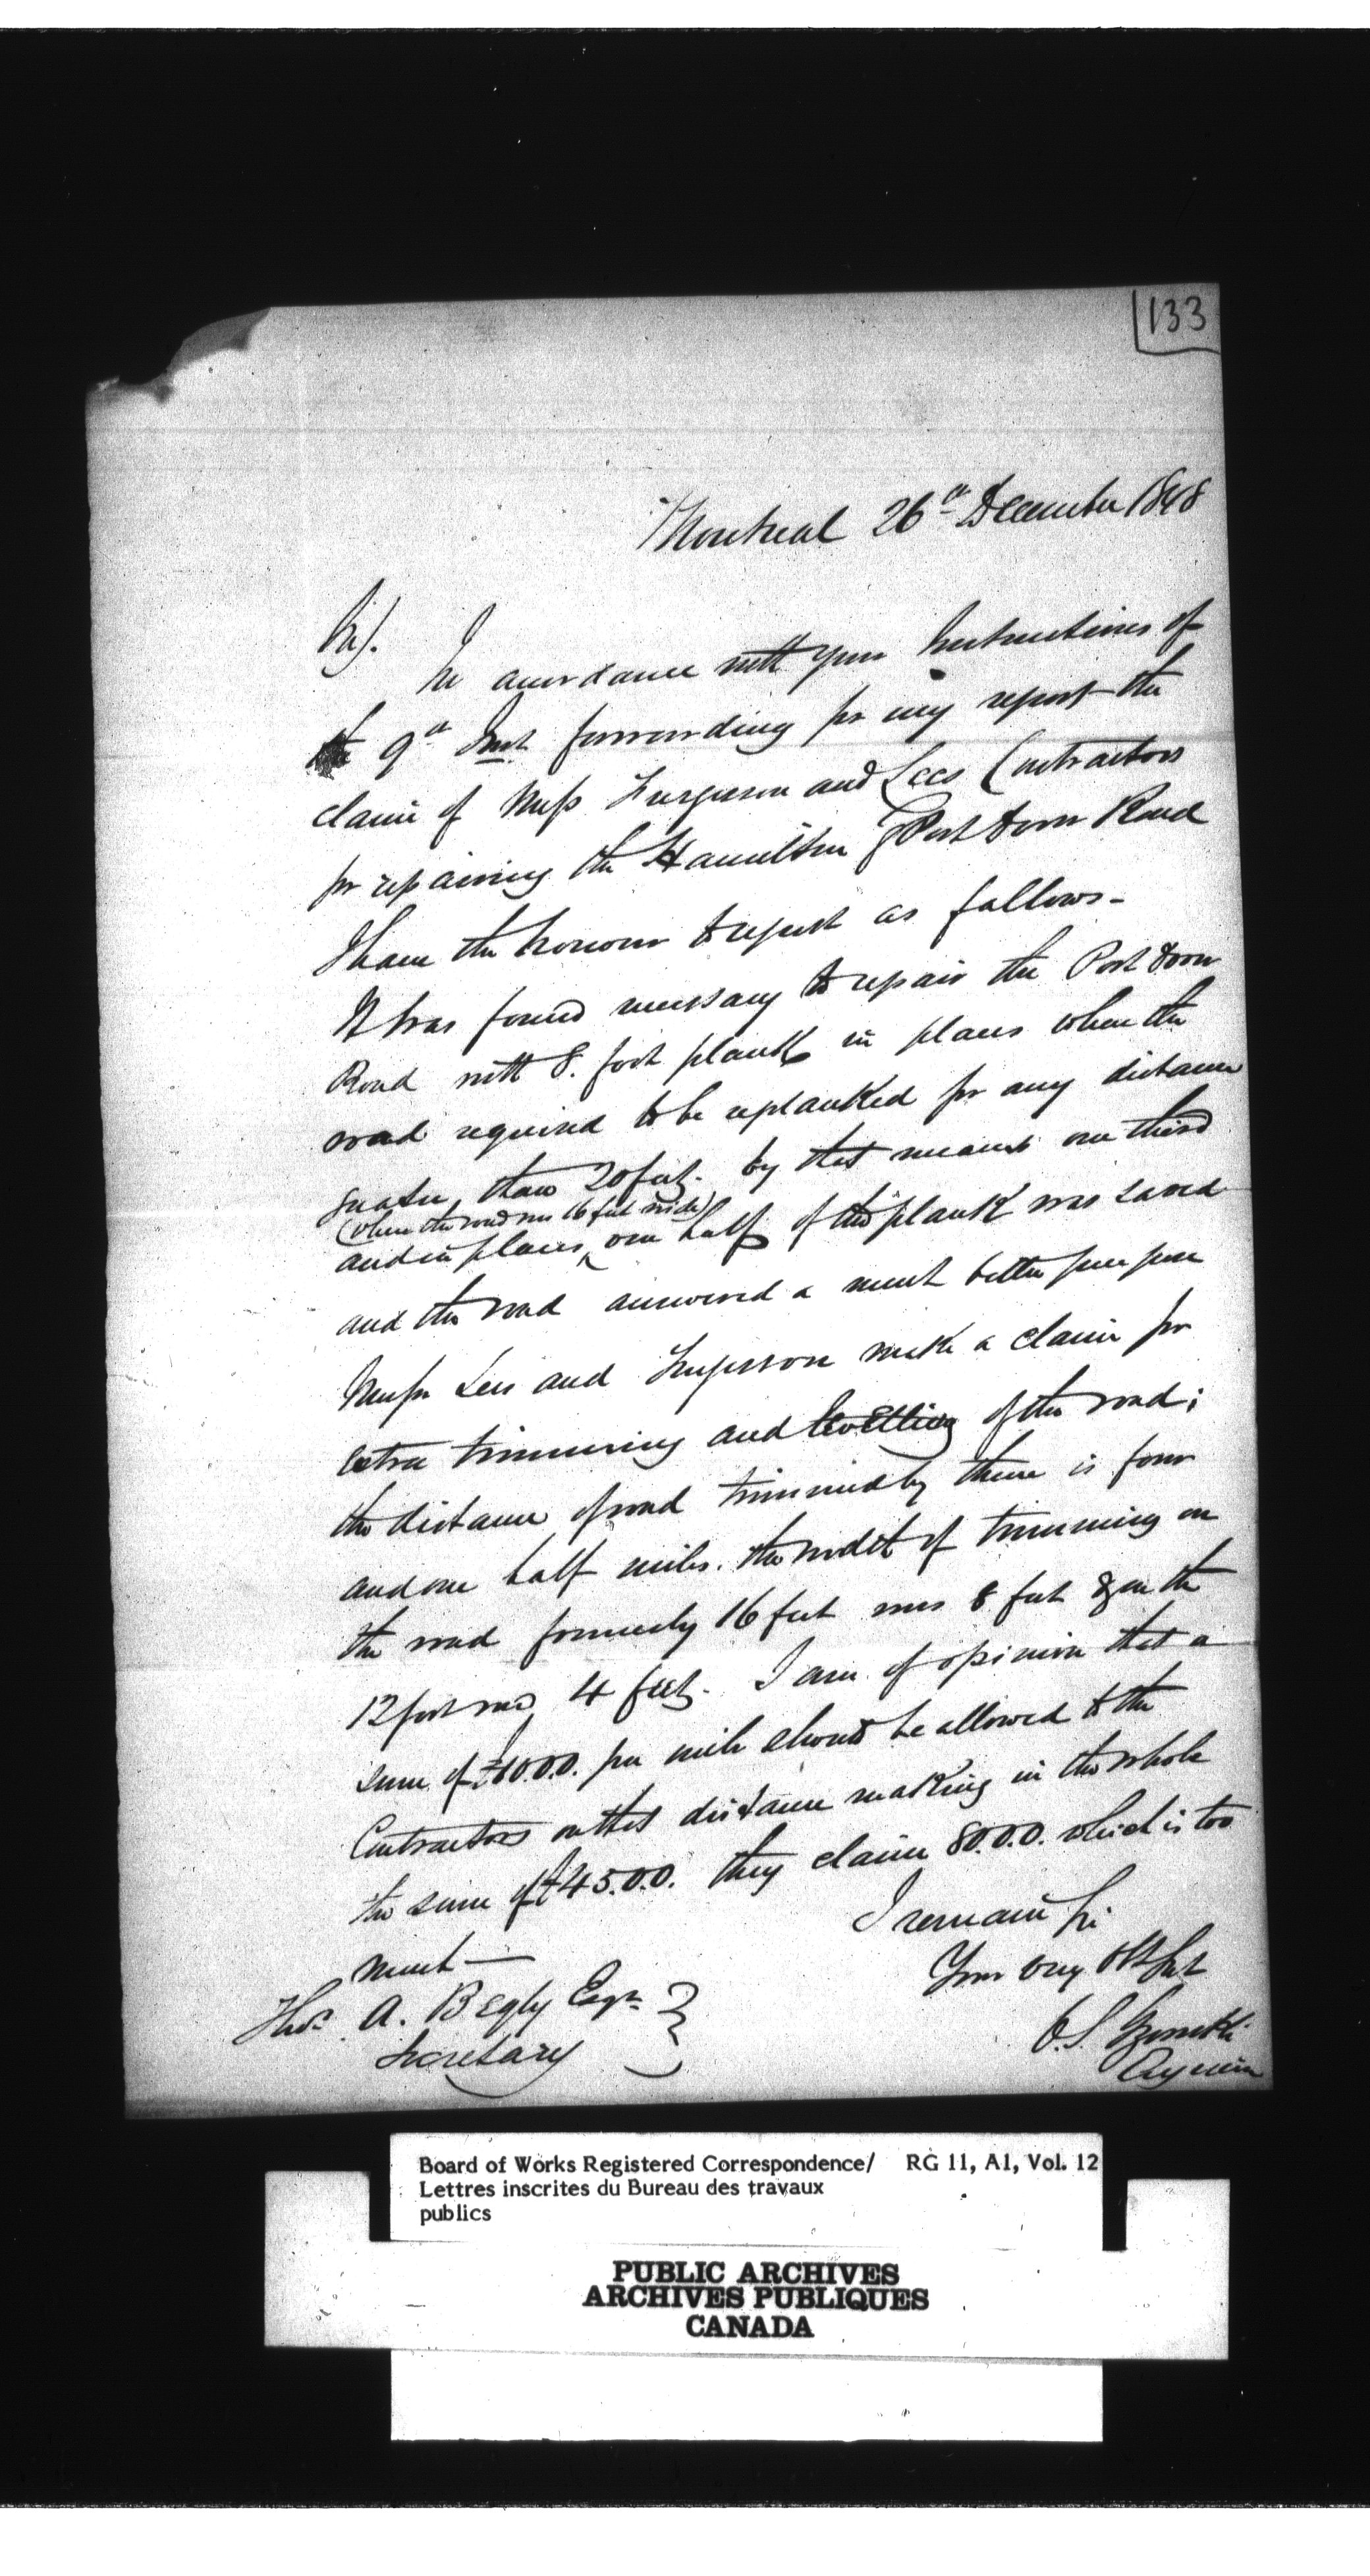 133
Montreal 26th December 1848
Sir,
In accordance with your Instructions of
the 9th Inst forwarding for my report the
claim of Messs Ferguson and Lees Contractors
for repairing the Hamilton & Port Dover Road
I have the honour to report as follows-
It was found necessary to repair the Port Dover
Road with 8. foot plank in places where the
road required to be replanked for any distance
greater than 20 feet. by that means one third
(where the road was 16 feet wide)
and in places one half of the plank was saved
and the road answered a much better purpose
Messrs Lees and Ferguson make a claim for
extra trimming and levelling of the road;
the distance of road trimmed by them is four
and one half miles. the width of trimming on
the road formerly 16 feet was 8 feet & on the
12 foot road 4 feet. I am of opinion that a
sum of £10.0.0. per mile should be allowed to the
Contractors on that distance making in the whole
the sum of £45.0.0. they claim 80.0.0. which is too
much —
I remain Sir
Your Very Obt Sert
C.S. Gzowski
Engineer
Thos. A. Begly Esqr.
Secretary
Board of Works Registered Correspondence/ RG 11, A1, Vol. 12
Lettres inscrites du Bureau des travaux
publics
PUBLIC ARCHIVES
ARCHIVES PUBLIQUES
CANADA